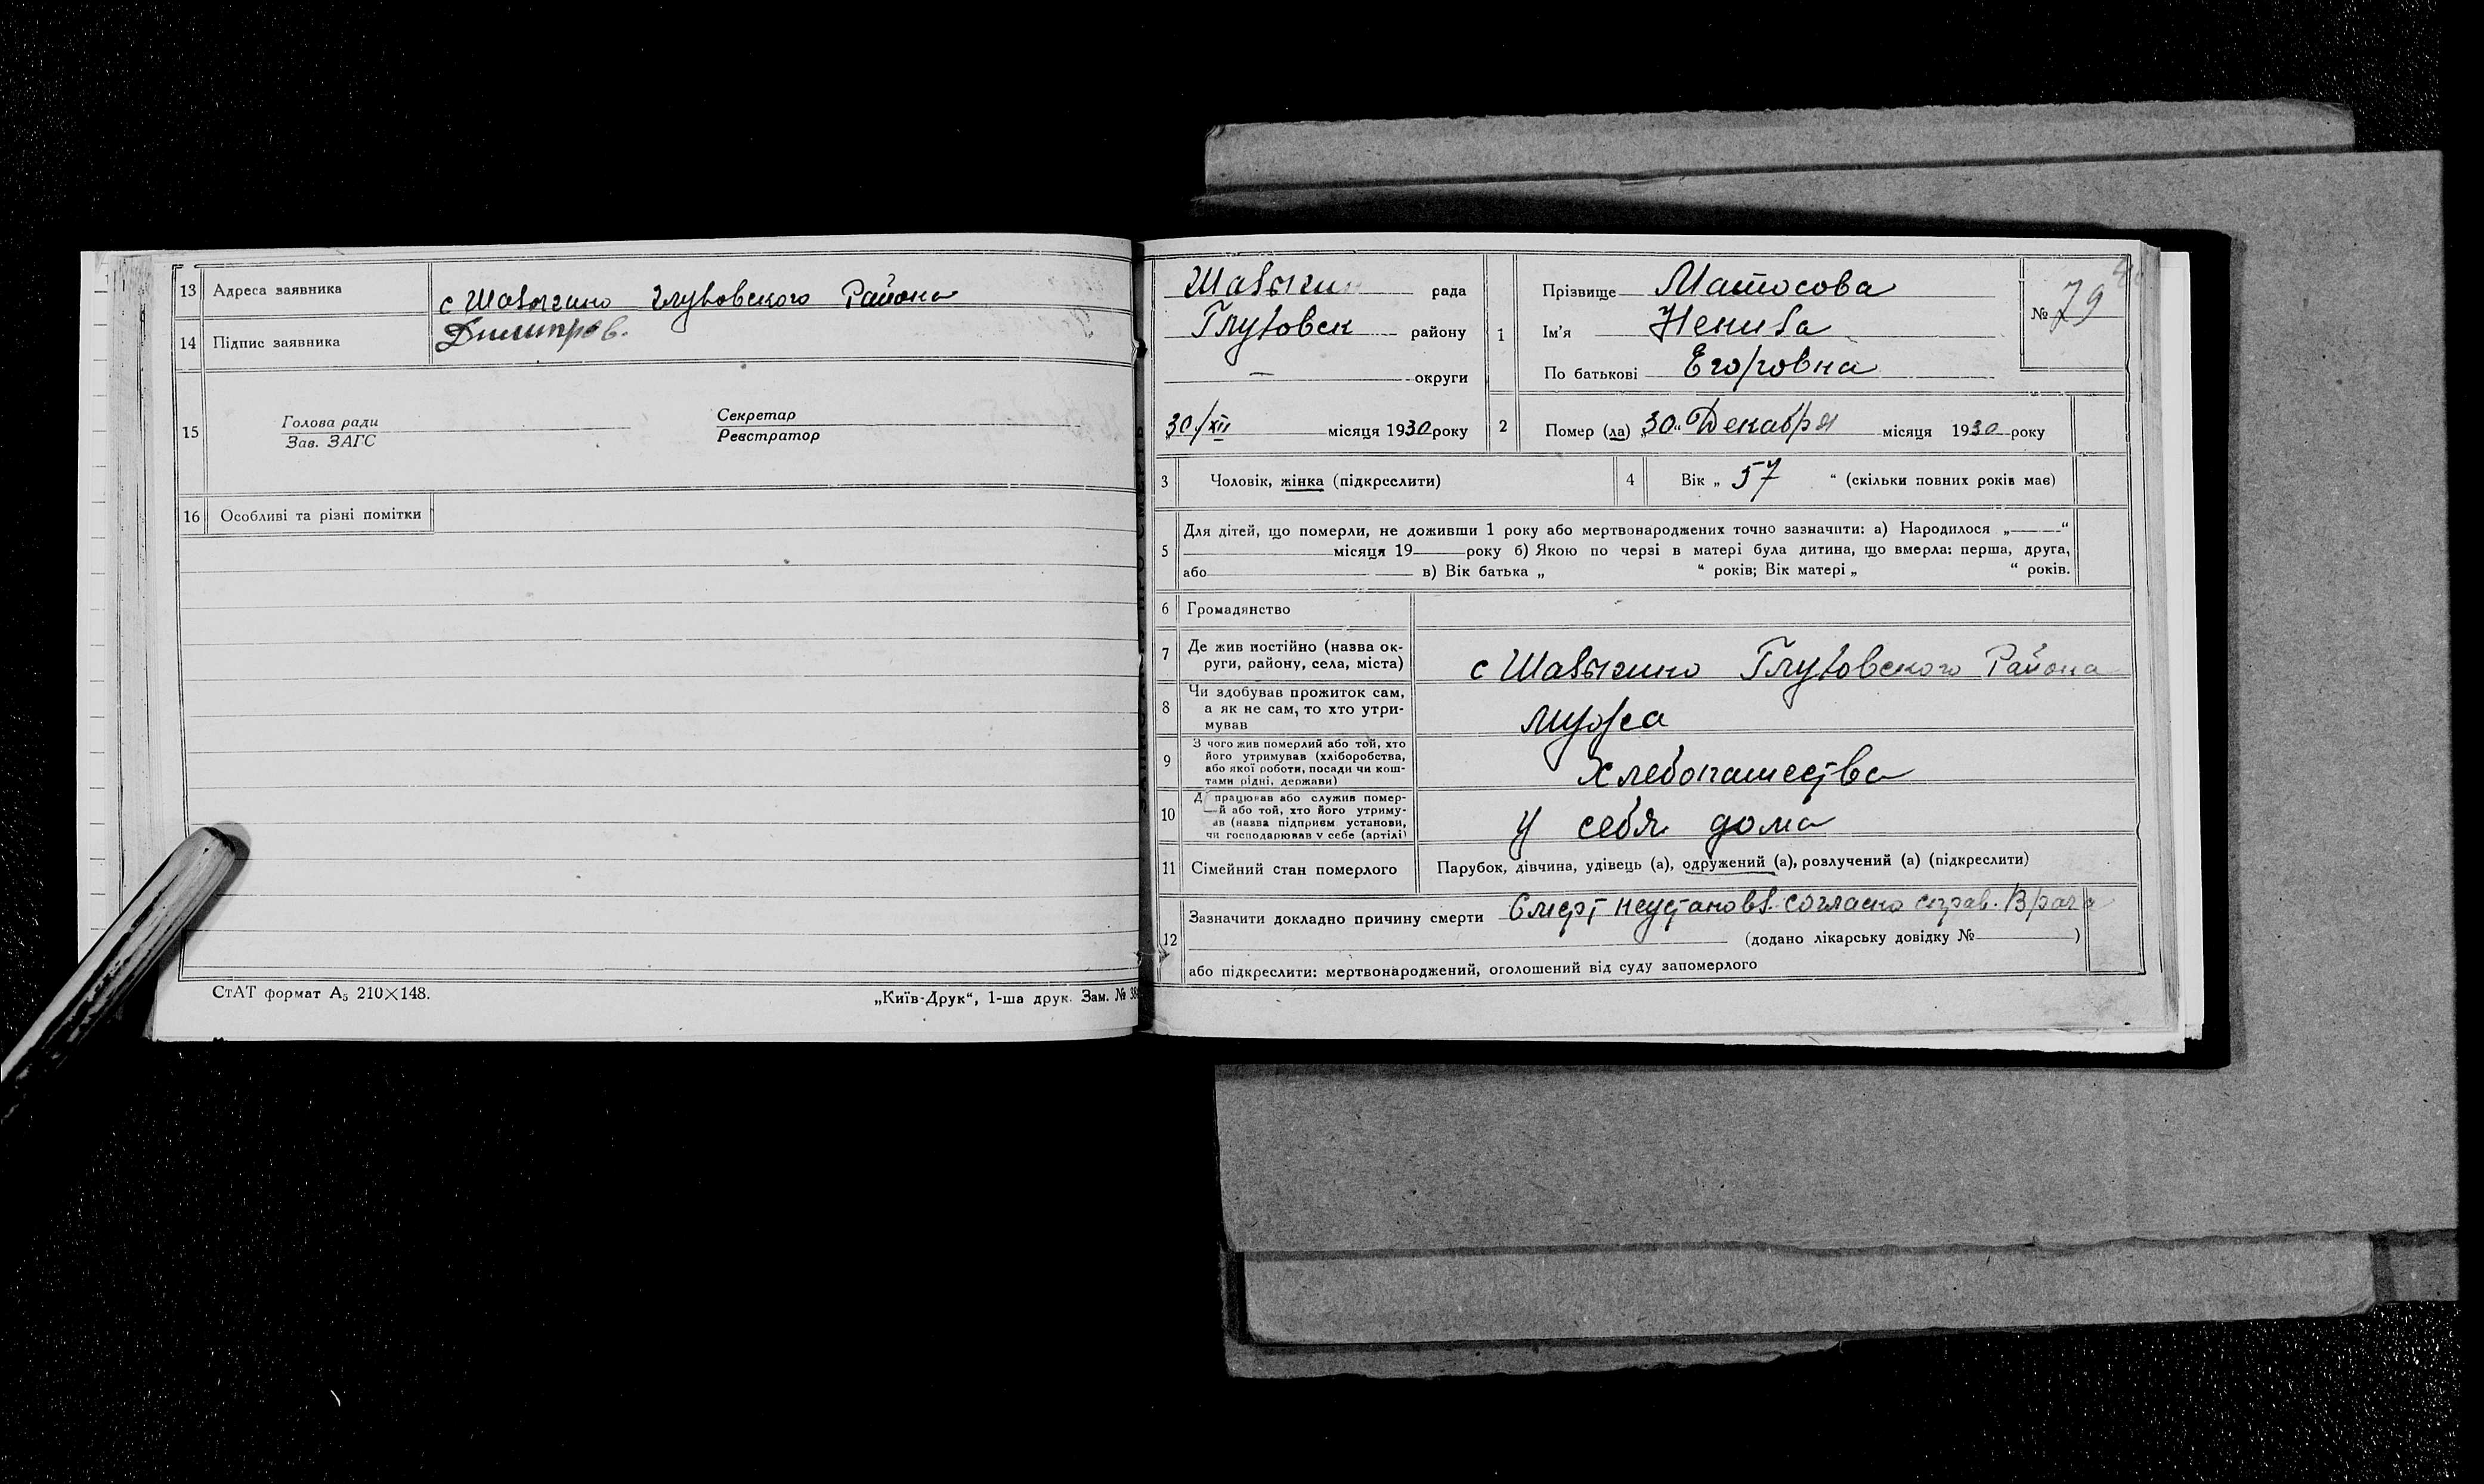 13 Адреса заявника с Шалыгино Глуховского Района
14 Підпис заявника Дмитров.
15 Голова ради Секретар
Зав. ЗАГС Реєстратор
16 Особливі та різні помітки
СтАТ формат А₅ 210×148. „Київ-Друк“, 1-ша друк. Зам. №
Шалыгин рада
Глуховск району
— округи
30/XII місяця 1930 року
1 Прізвище Матосова
Ім’я
По батькові Егоровна
№ 79
2 Помер (ла) „30“ Декабря місяця 1930 року
3 Чоловік, жінка (підкреслити) 4 Вік „ 57 “ (скільки повних років має)
5 Для дітей, що померли, не доживши 1 року або мертвонароджених точно зазначити: а) Народилося „ “
місяця 19 року б) Якою по черзі в матері була дитина, що вмерла: перша, друга,
або в) Вік батька „ “ років; Вік матері „ “ років.
6 Громадянство
7 Де жив постійно (назва ок-
руги, району, села, міста) с Шалыгино Глуховского Района
8 Чи здобував прожиток сам,
а як не сам, то хто утри-
мував мужа
9 З чого жив померлий або той, хто
його утримував (хліборобства,
або якої роботи, посади чи кош-
тами рідні, держави) Хлебопашества
10 працював або служив помер-
й або той, хто його утриму-
ав (назва підприєм. установи,
чи господарював у себе (артілі) У себя дома
11 Сімейний стан померлого Парубок, дівчина, удівець (а), одружений (а), розлучений (а) (підкреслити)
12 Зазначити докладно причину смерти Смерт неустановл. согласно справ. Врача
(додано лікарську довідку № )
або підкреслити: мертвонароджений, оголошений від суду запомерлого